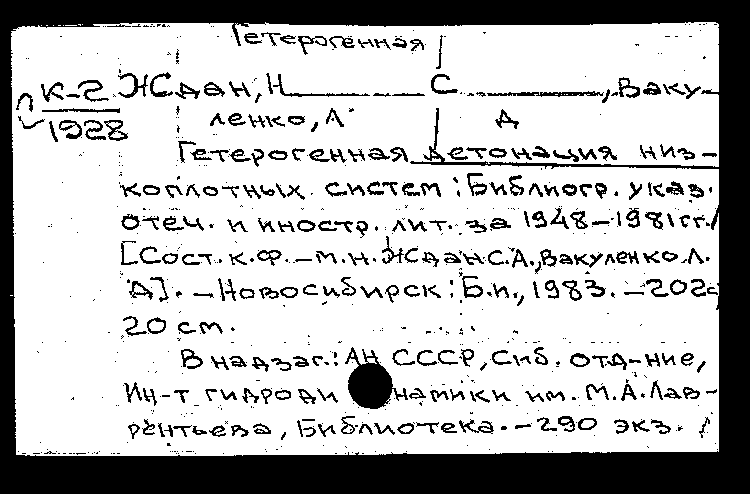 Гетерогенная
К-2 Ждан, Н С , Ваку-
1928 ленко, А Д
Гетерогенная детонация низ-
коплотных систем : Библиогр. указ.
отеч. и иностр. лит. за 1948-1981 гг./
[Сост. к.ф.-м.н. Ждан С.А., Вакуленко Л.
А]. - Новосибирск : Б.и., 1983. - 202с;
20 см.
В надзаг.: АН СССР, Сиб. отд-ние,
Ин-т гидродинамики им. М.А.Лав-
рентьева, Библиотека. - 290 экз.